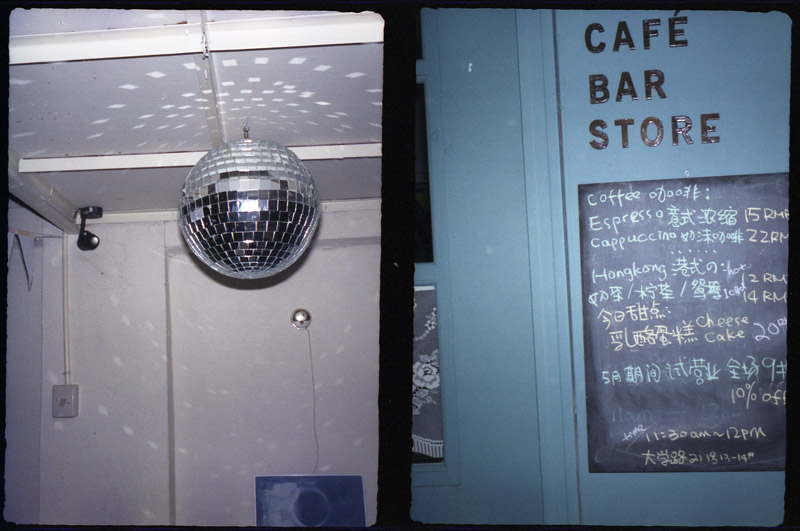 CAFÉ
BAR
STORE
Coffee 咖啡:
Espresso 意式浓缩 15 RMB
Cappuccino 奶沫咖啡 22RM
Hongkong 港式の: hot 12 RM
奶茶/柠茶/鸳鸯 iced 14 RM
今日甜点:
乳酪蛋糕 Cheese Cake 20
5月期间 试营业 全场9折
10% off
time 11:30am~12PM
大学路